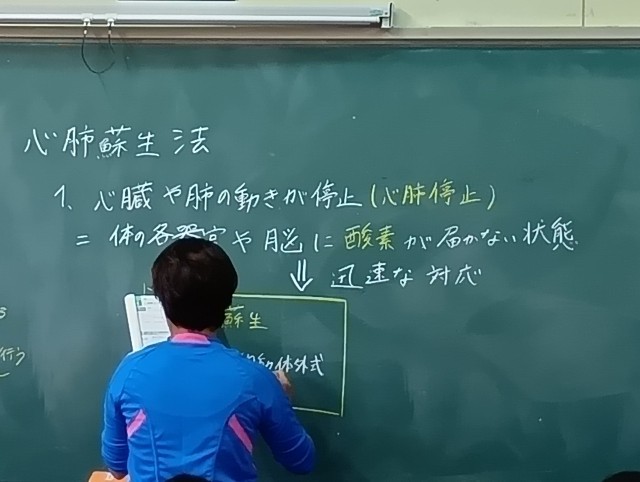 心肺蘇生法
1、心臓や肺の動きが停止(心肺停止)
= 体の各器官や脳に酸素が届かない状態
⇓ 迅速な対応
蘇生
動体外式
行う